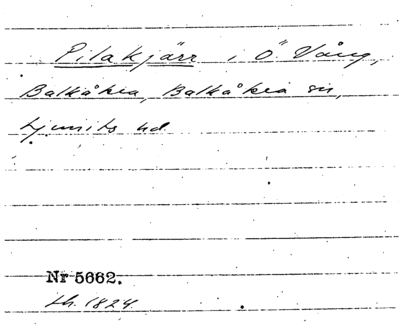 Pilakjärr i Ö. Vång,
Balkåkra, Balkåkra sn,
Ljunits hd
Nr 5662.
Lh. 1824